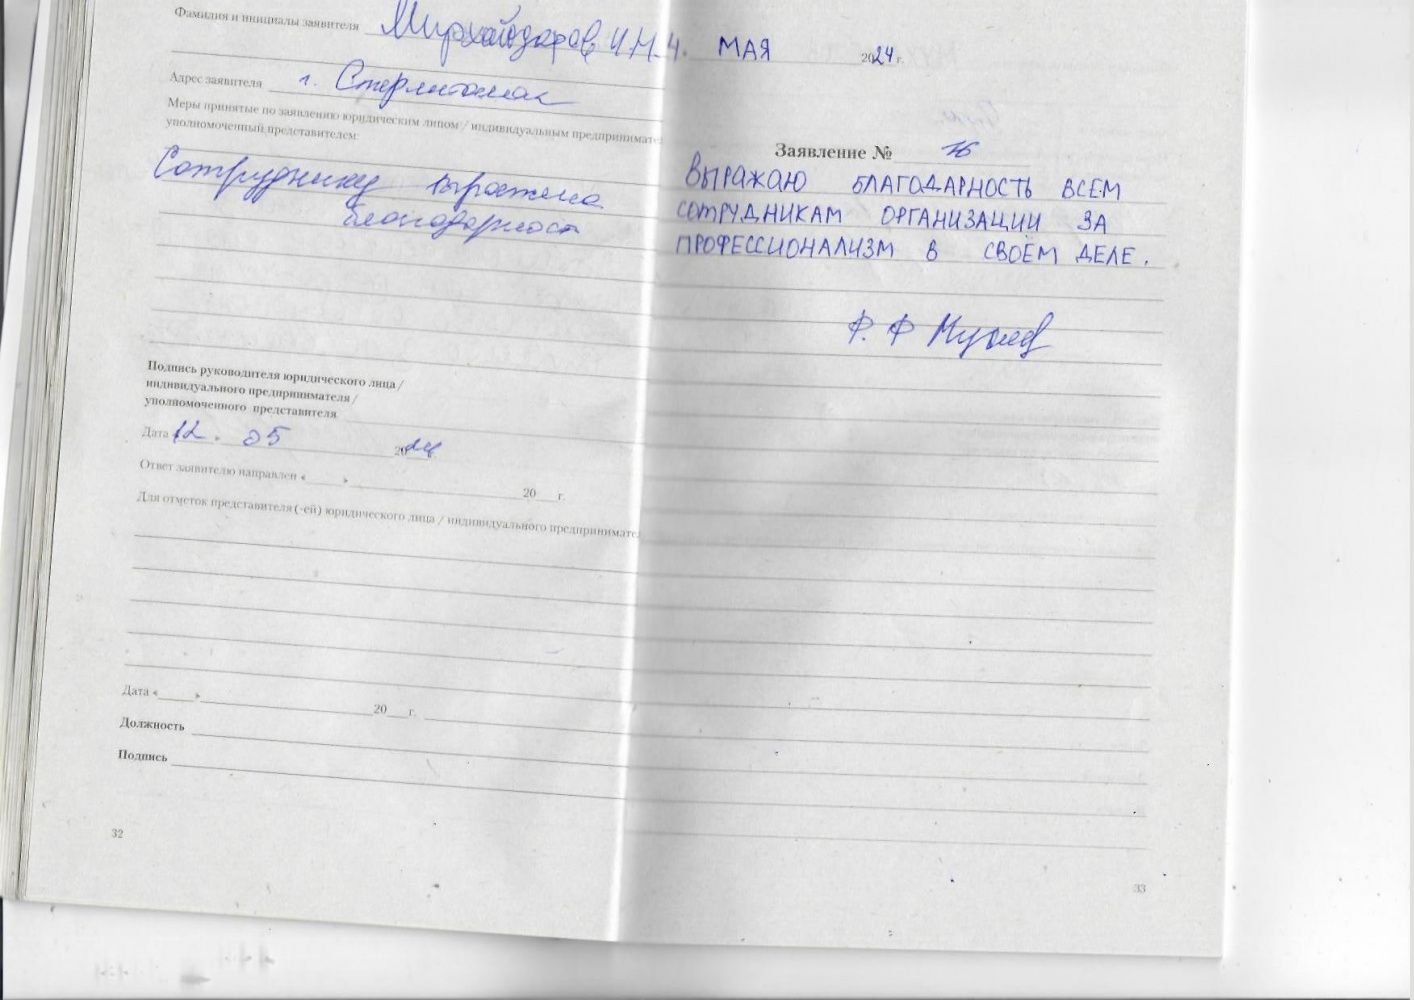 Фамилия и инициалы заявителя
Адрес заявителя г. Стерлитамак
Меры принятые по заявлению юридическим лицом / индивидуальным предпринимате
уполномоченный представителем:
Сотруднику выражена
благодарность
Подпись руководителя юридического лица /
индивидуального предпринимателя /
уполномоченного представителя
Дата 12. 05 2024
Ответ заявителю направлен «____» ____ 20__г.
Для отметок представителя(-ей) юридического лица / индивидуального предпринимате
Дата «____» ____ 20__г.
Должность
Подпись
32
4. МАЯ 2024 г.
Заявление № 16
ВЫРАЖАЮ БЛАГОДАРНОСТЬ ВСЕМ
СОТРУДНИКАМ ОРГАНИЗАЦИИ ЗА
ПРОФЕССИОНАЛИЗМ В СВОЁМ ДЕЛЕ.
Ф. Ф
33